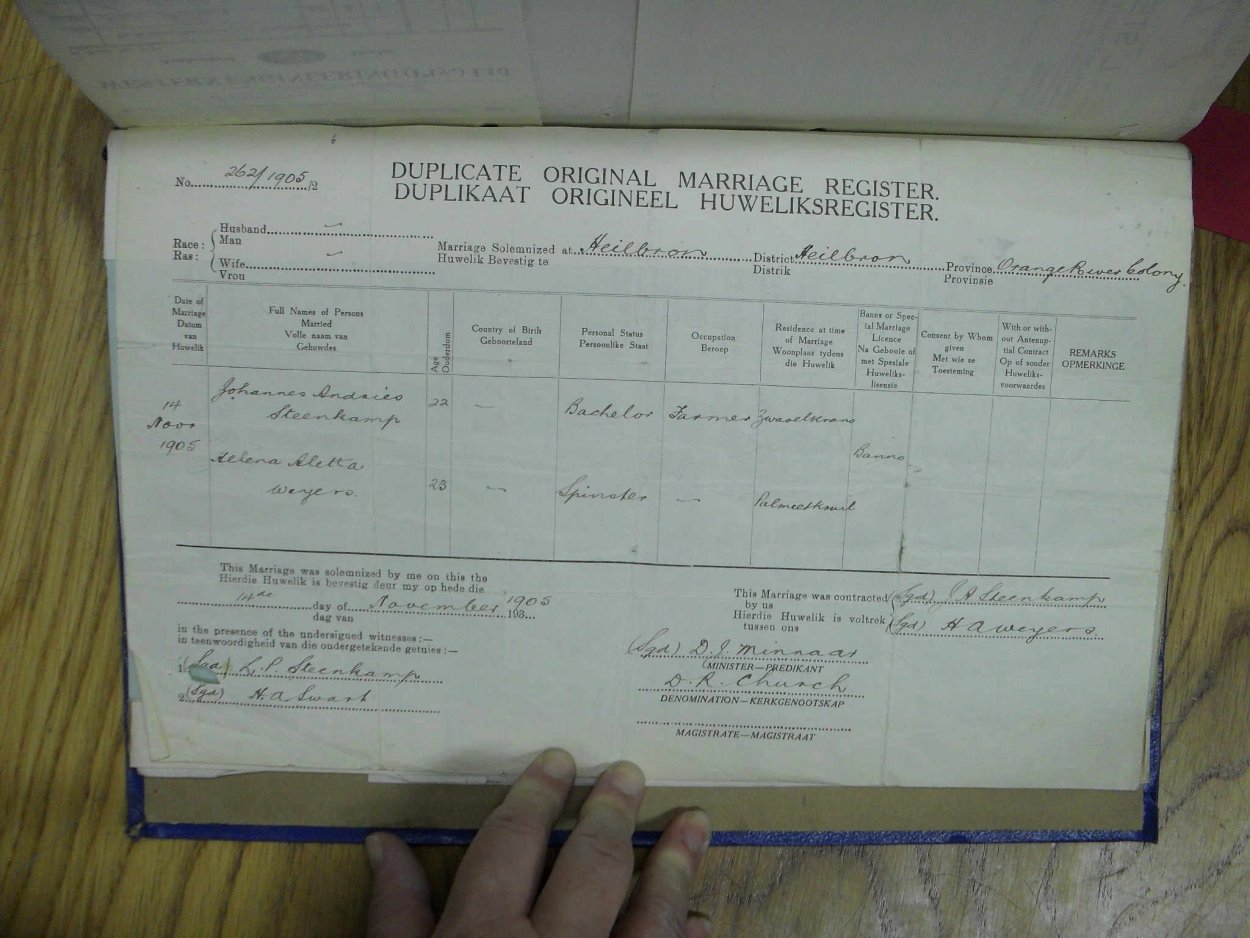 No. 262/1905 /2
DUPLICATE ORIGINAL MARRIAGE REGISTER.
DUPLIKAAT ORIGINEEL HUWELIKSREGISTER.
Race: Husband
Ras: Man
Wife
Vrou
Marriage Solemnized at Heilbron District Heilbron Province Orange River Colony.
Huwelik Bevestig te Distrik Provinsie
Date of Marriage
Datum van Huwelik
Full Names of Persons Married
Volle naam van Gehuwdes
Age
Ouderdom
Country of Birth
Geboorteland
Personal Status
Persoonlike Staat
Occupation
Beroep
Residence at time of Marriage
Woonplaas tydens die Huwelik
Banns or Special Marriage Licence
Na Gebooie of met Spesiale Huweliks-lisensie
Consent by Whom given
Met wie se Toesteming
With or without Antenuptial Contract
Op of sonder Huweliks-voorwaardes
REMARKS
OPMERKINGE
14 Novr 1905
Johannes Andries Steenkamp 22 — Bachelor Farmer Zwavelkrans
Banns
Helena Aletta Weyers. 23 — Spinster — Palmietkuil
This Marriage was solemnized by me on this the
Hierdie Huwelik is bevestig deur my op hede die
14de day of November 1905 193...
dag van
in the presence of the undersigned witnesses:—
in teenwoordigheid van die ondergetekende getuies:—
1. (Sgd) L. P. Steenkamp
2. (Sgd) H. A. Swart
This Marriage was contracted by us
Hierdie Huwelik is voltrek tussen ons
(Sgd) J A Steenkamp
(Sgd) H A Weyers.
(Sgd) D. J. Minnaar
MINISTER—PREDIKANT
D. R. Church
DENOMINATION—KERKGENOOTSKAP
MAGISTRATE—MAGISTRAAT